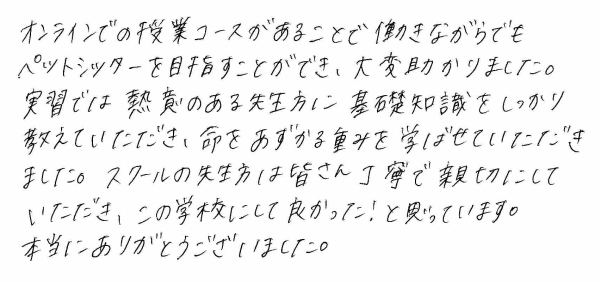 オンラインでの授業コースがあることで働きながらでも
ペットシッターを目指すことができ、大変助かりました。
実習では熱意のある先生方に基礎知識をしっかり
教えていただき、命をあずかる重みを学ばせていただき
ました。スクールの先生方は皆さん丁寧で親切にして
いただき、この学校にして良かった!と思っています。
本当にありがとうございました。